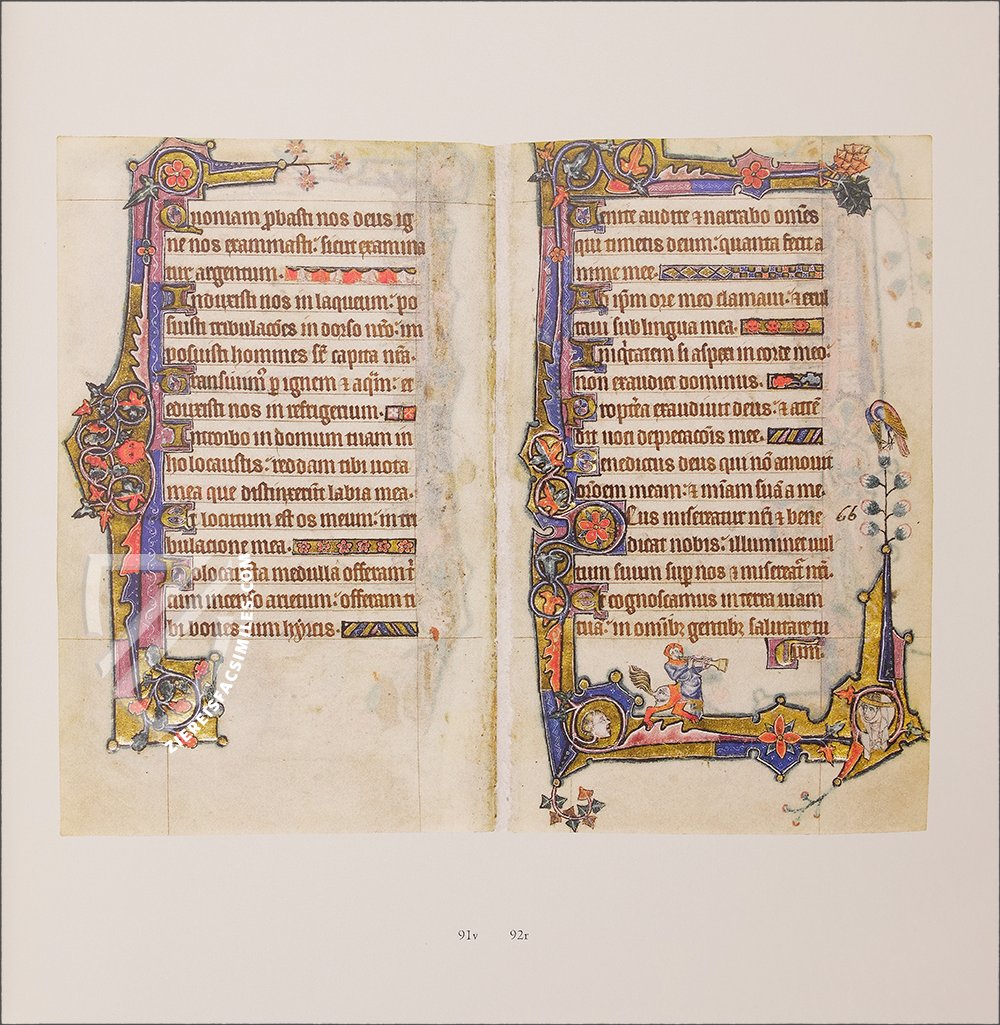 Quoniam p̱basti nos deus ig
ne nos examinasti: sicut examina
tur argentum.
Induxisti nos in laqueum: po
suisti tribulac̄oes in dorso nr̄o: im
posuisti homines sr̄ capita nr̄a.
Transiuim⁹ p̱ ignem ⁊ aq̄m: et
eduxisti nos in refrigerium.
Introibo in domum tuam in
holocaustis: reddam tibi uota
mea que distinxerūt labia mea.
Et locutum est os meum: in tri
bulacione mea.
Holocausta medulla offeram t̄
cum incenso arietum: offeram ti
bi boues cum hyrcis.
Uenite audite ⁊ narrabo om̄es
qui timetis deum: quanta fecit a
nime mee.
Ad ip̄m ore meo clamaui: ⁊ exal
taui sub lingua mea.
Iniq̄tatem si aspexi in corde meo:
non exaudiet dominus.
Propt̄ea exaudiuit deus: ⁊ attē
dit uoci deprecac̄ois mee.
Benedictus deus qui nō amouit
or̄oem meam: ⁊ mīam suā a me.
Deus misereatur nr̄i ⁊ bene
66
dicat nobis: illuminet uul
tum suum sup̱ nos ⁊ misereat᷑ nr̄i.
Ut cognoscamus in terra uiam
tua: in omīb᷑ gentib᷑ salutare tu
um.
ZIEREISFACSIMILES.COM
91v 92r